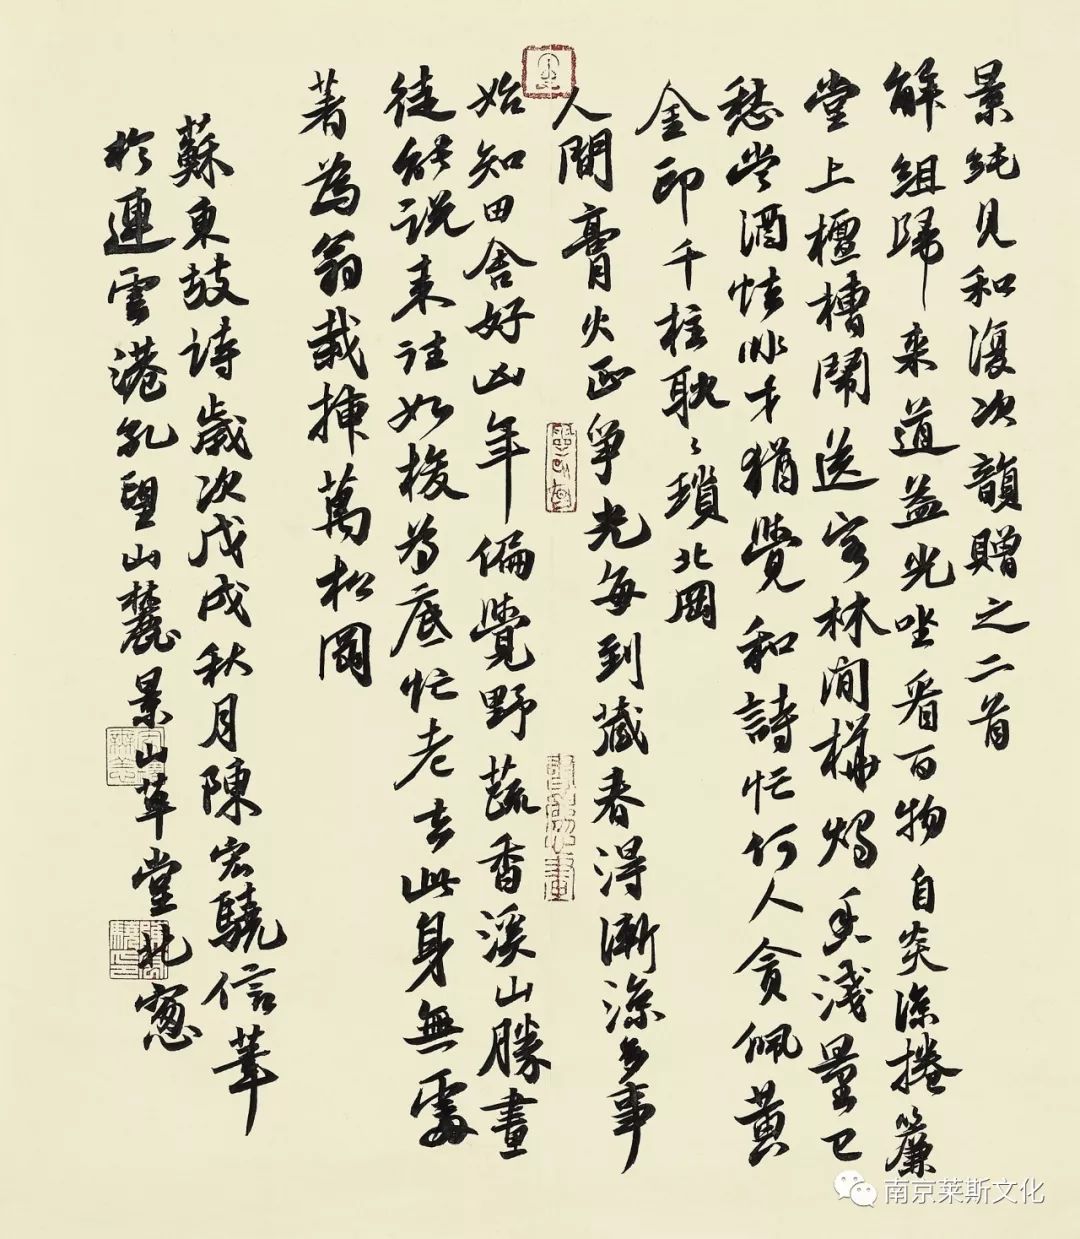 景純見和復次韻贈之二首
解組歸来道益光坐看百物自炎涼捲簾
堂上檀槽鬧送客林間樺燭香淺量已
愁當酒怯非才猶覺和詩忙何人貪佩黃
金印千柱耽〻瑣北岡
人間膏火正爭光每到藏春得漸涼多事
始知田舍好凶年偏覺野蔬香溪山勝畫
徒能說来往如梭为底忙老去此身無處
著為翁栽插萬松岡
蘇東坡詩歲次戊戌秋月陳宏驍信筆
於連雲港孔望山麓景山草堂北窗
南京莱斯文化